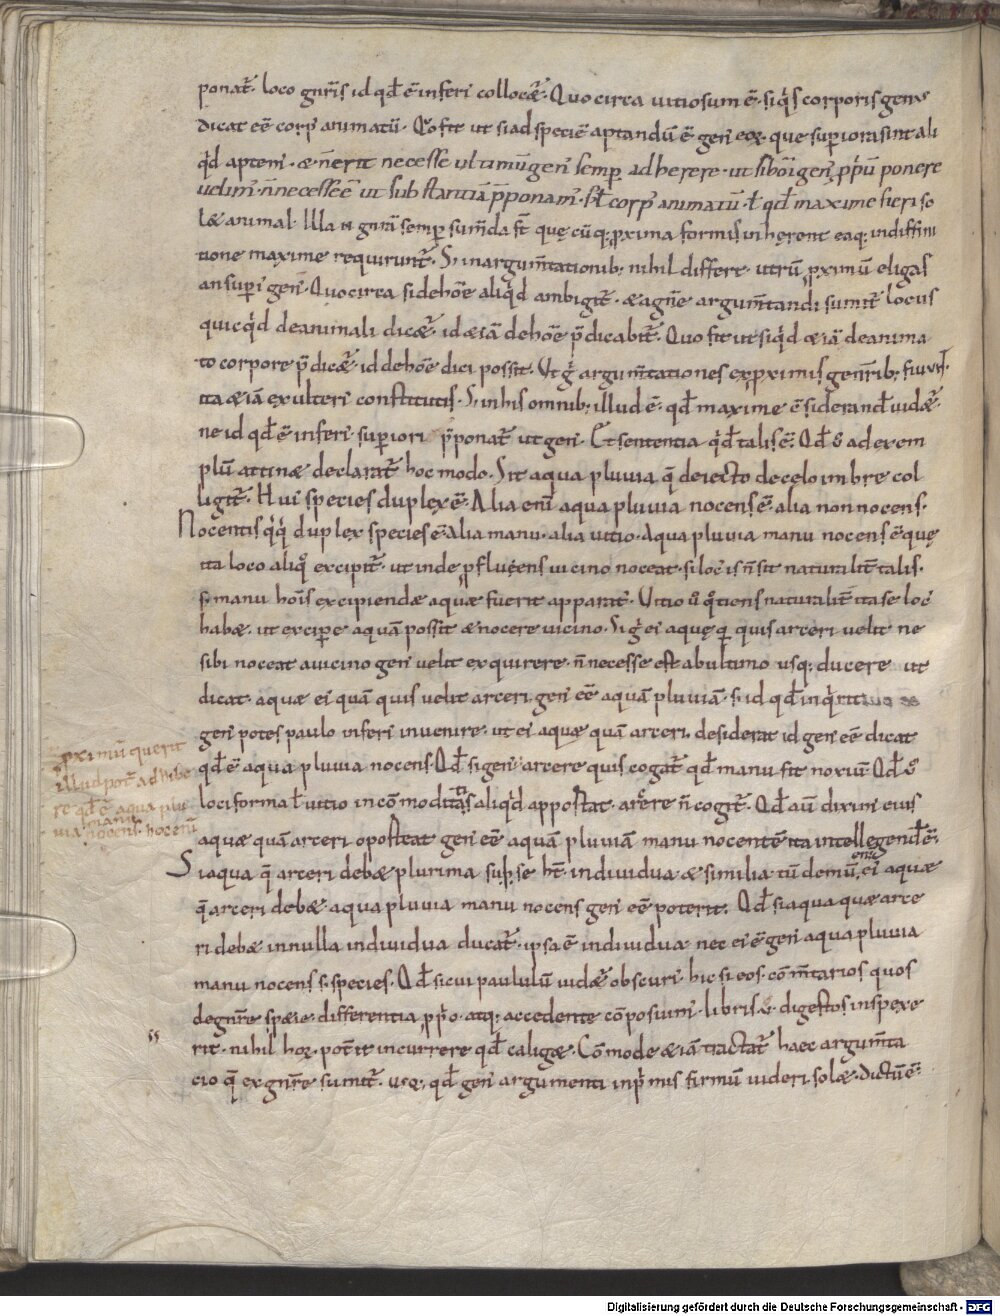 ponat̃· loco gñris id qđ ẽ inferi᾽ collocæ̃t· Quocirca uitiosum ẽ· siq̇s corporis gen᾽
dicat eẽ corp᾽ animatũ· Q̊o fit ut si ad speciẽ aptandũ ẽ gen᾽ eoꝝ· que superiora sint ali
q̇d aptem᾽· & ñ erit necesse ultimũ gen᾽ semp adherere· ut si hoĩs gen᾽ ꝓpriũ ponere
uelim᾽· ñ necesse ẽ ut substantiã p̃ponam᾽· sꝉ corp᾽ animatũ· ł qđ maxime fieri so
l& animal· Illa ñ gñra semp sum̃da st̃ quę cũq; ꝓxima formis inhęrent eaq; in diffini
tione maxime requirunt̃· S; in argum̃tationib; nihil differre· utrũ ꝓximũ eligas
an superi᾽ gen᾽· Quocirca si de hoẽ aliq̇d ambigit̃· & a gñe argum̃tandi sumit̃ locus
quicq̇d de animali dicæ̃t· id &iã de hoẽ p̃dicabit̃· Quo fit ut siq̇d &iã de anima
to corpore p̃dicæ̃t· id de hoẽ dici possit· Vt g̊ argum̃tationes ex ꝓximis geñrib; fiunt·
ita &iã ex ulteri᾽ constitutis· S; in his omnib; illud ẽ· qđ maxime ẽsiderand᾽ uidæ̃t·
ne id qđ ẽ inferi᾽ superiori p̃ponat̃ ut gen᾽· Et sententia q̇d̃ talis ẽ· Qđ ů ad exem
plũ attin& declarat̃ hoc modo· Sit aqua pluuia q̃ deiecto de cęlo imbre col
ligit̃· Hui᾽ species duplex ẽ· Alia eni᾽ aqua pluuia nocens ẽ· alia non nocens·
Nocentis q̊q; duplex species ẽ· Alia manu· alia uitio· Aqua pluuia manu nocens ẽ quę
ita loco aliq̊ excipit̃· ut inde ꝓfluęens uicino noceat· si loc᾽ is ñ sit naturalit̃ talis·
s; manu hoĩs excipiendæ aquæ fuerit apparat᾽· Uitio ů q̊tiens naturalit̃ ita se loc᾽
hab&· ut excipere aquã possit & nocere uicino· Si g̊ ei᾽ aquę q̃ quis arceri uelit ne
sibi noceat a uicino gen᾽ uelit exquirere· ñ necesse est ab ultimo usq; ducere ut
dicat· aquæ ei᾽ quã quis uelit arceri gen᾽ eẽ aquã pluuiã· s; id qđ inq̇rit
gen᾽ potes paulo inferi᾽ inuenire· ut ei᾽ aquæ quã arceri desiderat id gen᾽ eẽ dicat
qđ ẽ aqua pluuia nocens· Qđ si gen᾽ arcere quis cogat̃ qđ manu fit noxiũ· Qđ ů
loci forma ł uitio incõmoditatis aliq̇d apportat· arcere ñ cogit̃· Qđ aũ dixim᾽ eius
ꝓximũ querit
illud pot᾽ adhibe
re qđ ẽ aqua plu
uia manu nocens· hoc enĩ
aquæ quã arceri oporteat gen᾽ eẽ aquã pluuiã manu nocentẽ ita intellegend᾽ ẽ·
Si aqua q̃ arceri deb& plurima sup se ht̃· indiuidua & similia· tũ demũ eni᾽ ei᾽ aquæ
q̃ arceri deb&· aqua pluuia manu nocens gen᾽ eẽ poterit· Qđ si aqua quæ arce
ri deb& in nulla indiuidua ducat̃· ipsa ẽ indiuidua nec ei᾽ ẽ gen᾽ aqua pluuia
manu nocens s; species· Qđ si cui paululũ uidæ̃t obscuri᾽ hic si eos cõm̃tarios quos
de gñre specie differentia ꝓprio· atq; accedente cõposuim᾽· libris ů digestos inspexe
rit· nihil hoꝝ poterit incurrere qđ calig&· Cõmode &iã tractat̃ haec argum̃ta
cio q̃ ex gñre sumit̃· usq; qđ gen᾽ argumenti inprimis firmũ uideri sol&· dictũ ẽ·